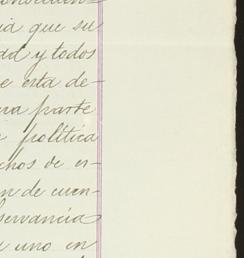 ia que su
dad y todos
e esta de-
na parte
política
chos de es-
n de cuen-
servancia
uno en